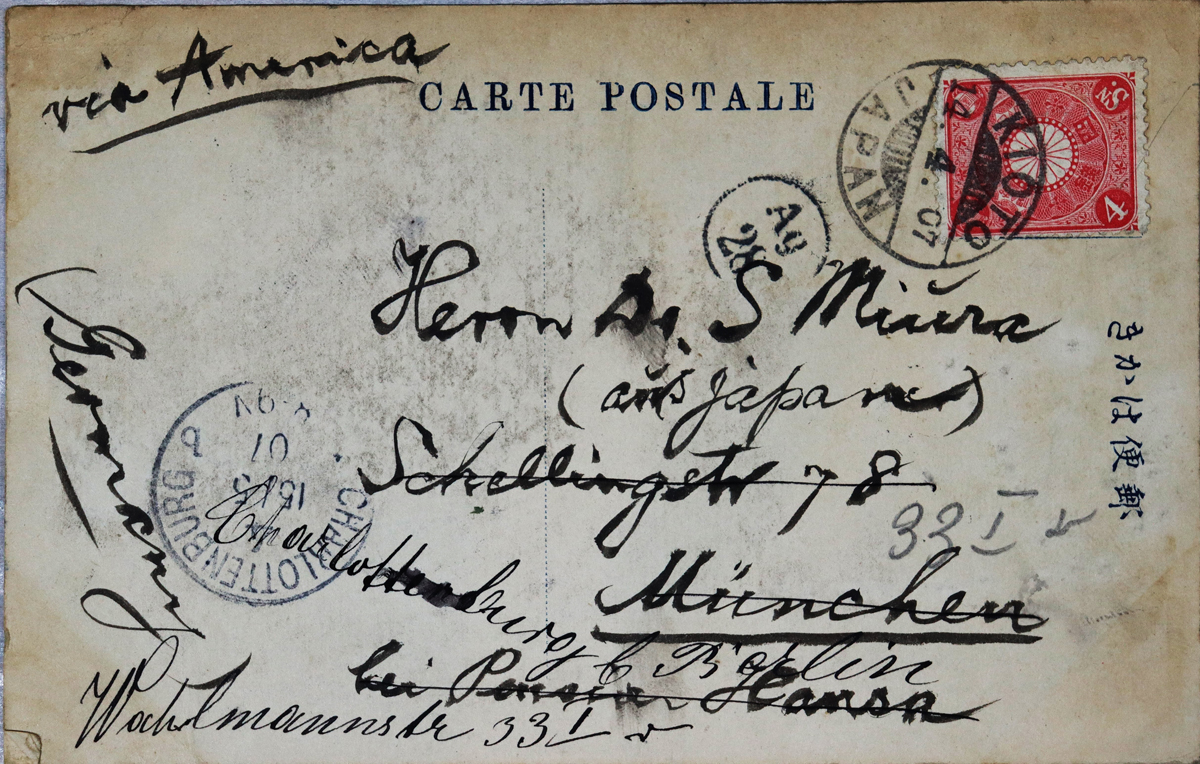 via America
CARTE POSTALE
KIOTO
14.4.07
JAPAN
4
Sn.
Ag
28
Herrn Dr. S Miura
(aus Japan)
Schellingstr 78
München
bei Pension Hansa
Germany
CHARLOTTENBURG 2
07
Charlottenburg b Berlin
Wahlmannstr 33 I r
33 I r
きかは便郵